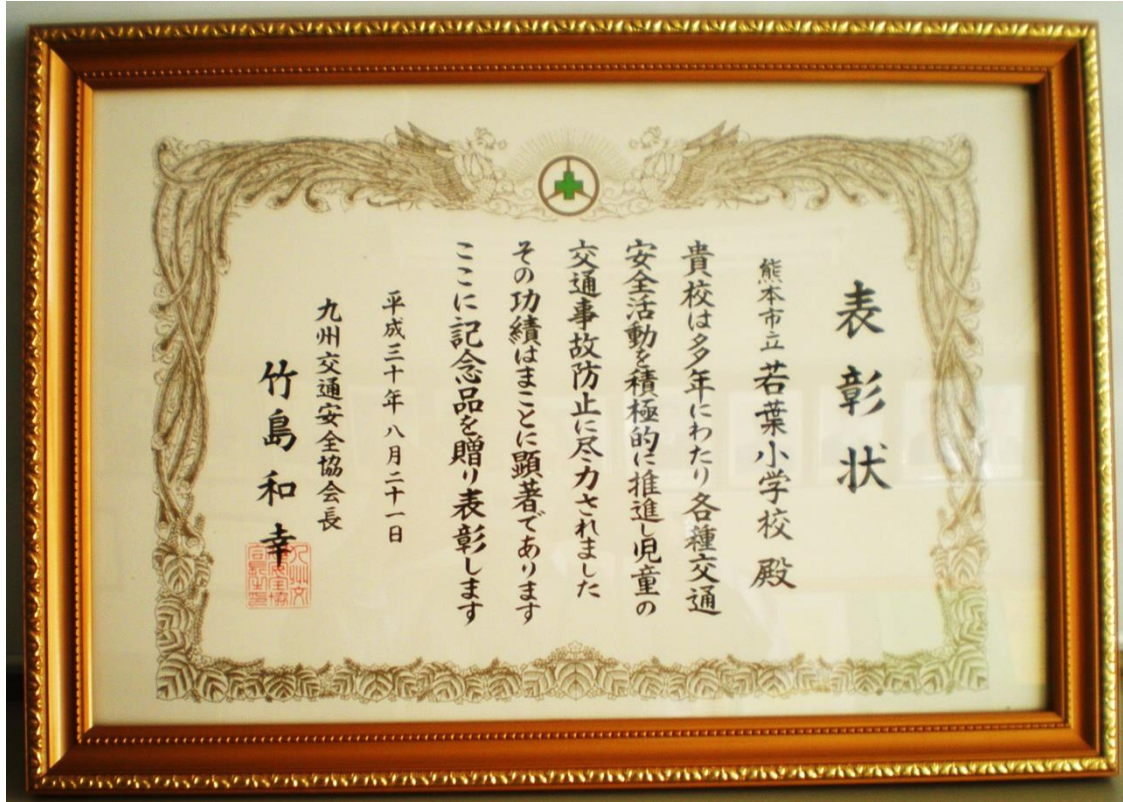 表彰状
熊本市立 若葉小学校 殿
貴校は多年にわたり各種交通
安全活動を積極的に推進し児童の
交通事故防止に尽力されました
その功績はまことに顕著であります
ここに記念品を贈り表彰します
平成三十年 八月二十一日
九州交通安全協会長
竹島和幸